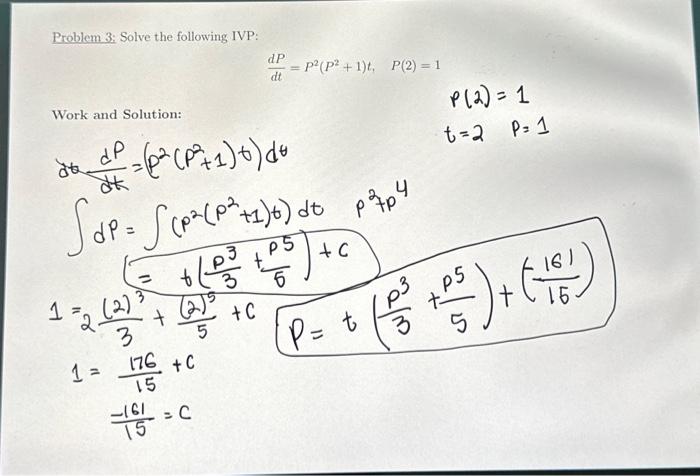 Problem 3: Solve the following IVP:
dP/dt = P²(P² + 1)t, P(2) = 1
Work and Solution:
P(2) = 1
t=2 P=1
dt dP/dt = (P²(P²+1)t)dt
∫dP = ∫(P²(P²+1)t) dt P²+P⁴
= t(P³/3 + P⁵/5) + C
1 = 2 (2)³/3 + (2)⁵/5 + C
P = t (P³/3 + P⁵/5) + (-161/15)
1 = 176/15 + C
-161/15 = C